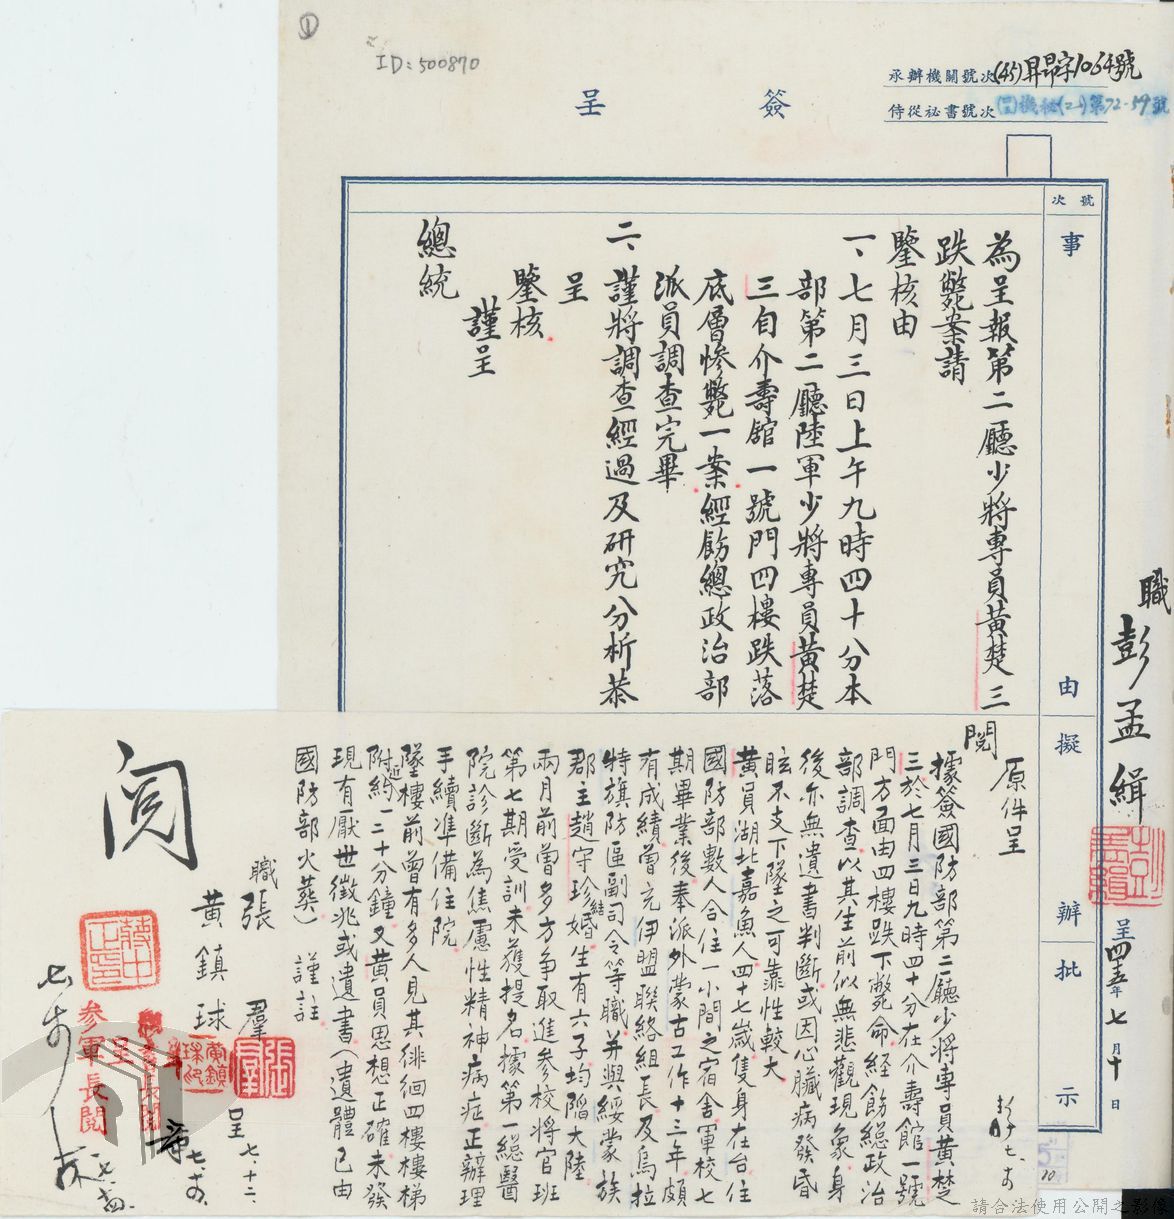 ①
ID：500870
簽呈
承辦機關號次(45)昇昂字1064號
侍從秘書號次 機秘(二)第72-59號
號次
事由
擬辦
批示
為呈報第二廳少將專員黃楚三
跌斃案請
鑒核由
一、七月三日上午九時四十分本
部第二廳陸軍少將專員黃楚
三自介壽館一號門四樓跌落
底層慘斃一案經飭總政治部
派員調查完畢
二、謹將調查經過及研究分析恭
呈
鑒核
謹呈
總統
職彭孟緝
呈四五年七月十日
原件呈
閱
據簽國防部第二廳少將專員黃楚
三於七月三日九時四十分在介壽館一號
門方面由四樓跌下斃命經飭總政治
部調查以其生前似無悲觀現象身
後亦無遺書判斷或因心臟病發昏
眩不支下墜之可靠性較大
黃員湖北嘉魚人四十七歲隻身在台住
國防部數人合住一小間之宿舍軍校七
期畢業後奉派外蒙古工作十三年頗
有成績曾充伊盟聯絡組長及烏拉
特旗防區副司令等職并與綏蒙族
郡主趙守珍結婚生有六子均陷大陸
兩月前曾多方爭取進參校將官班
第七期受訓未獲提名據第一總醫
院診斷為焦慮性精神病症正辦理
手續準備住院
墜樓前曾有多人見其徘徊四樓樓梯
附近約一二十分鐘又黃員思想正確未發
現有厭世徵兆或遺書（遺體已由
國防部火葬）謹註
職張羣
黃鎮球
呈七、十二、
閱
蔣中正印
參軍長閱
張羣
黃鎮球印
請合法使用公開之影像